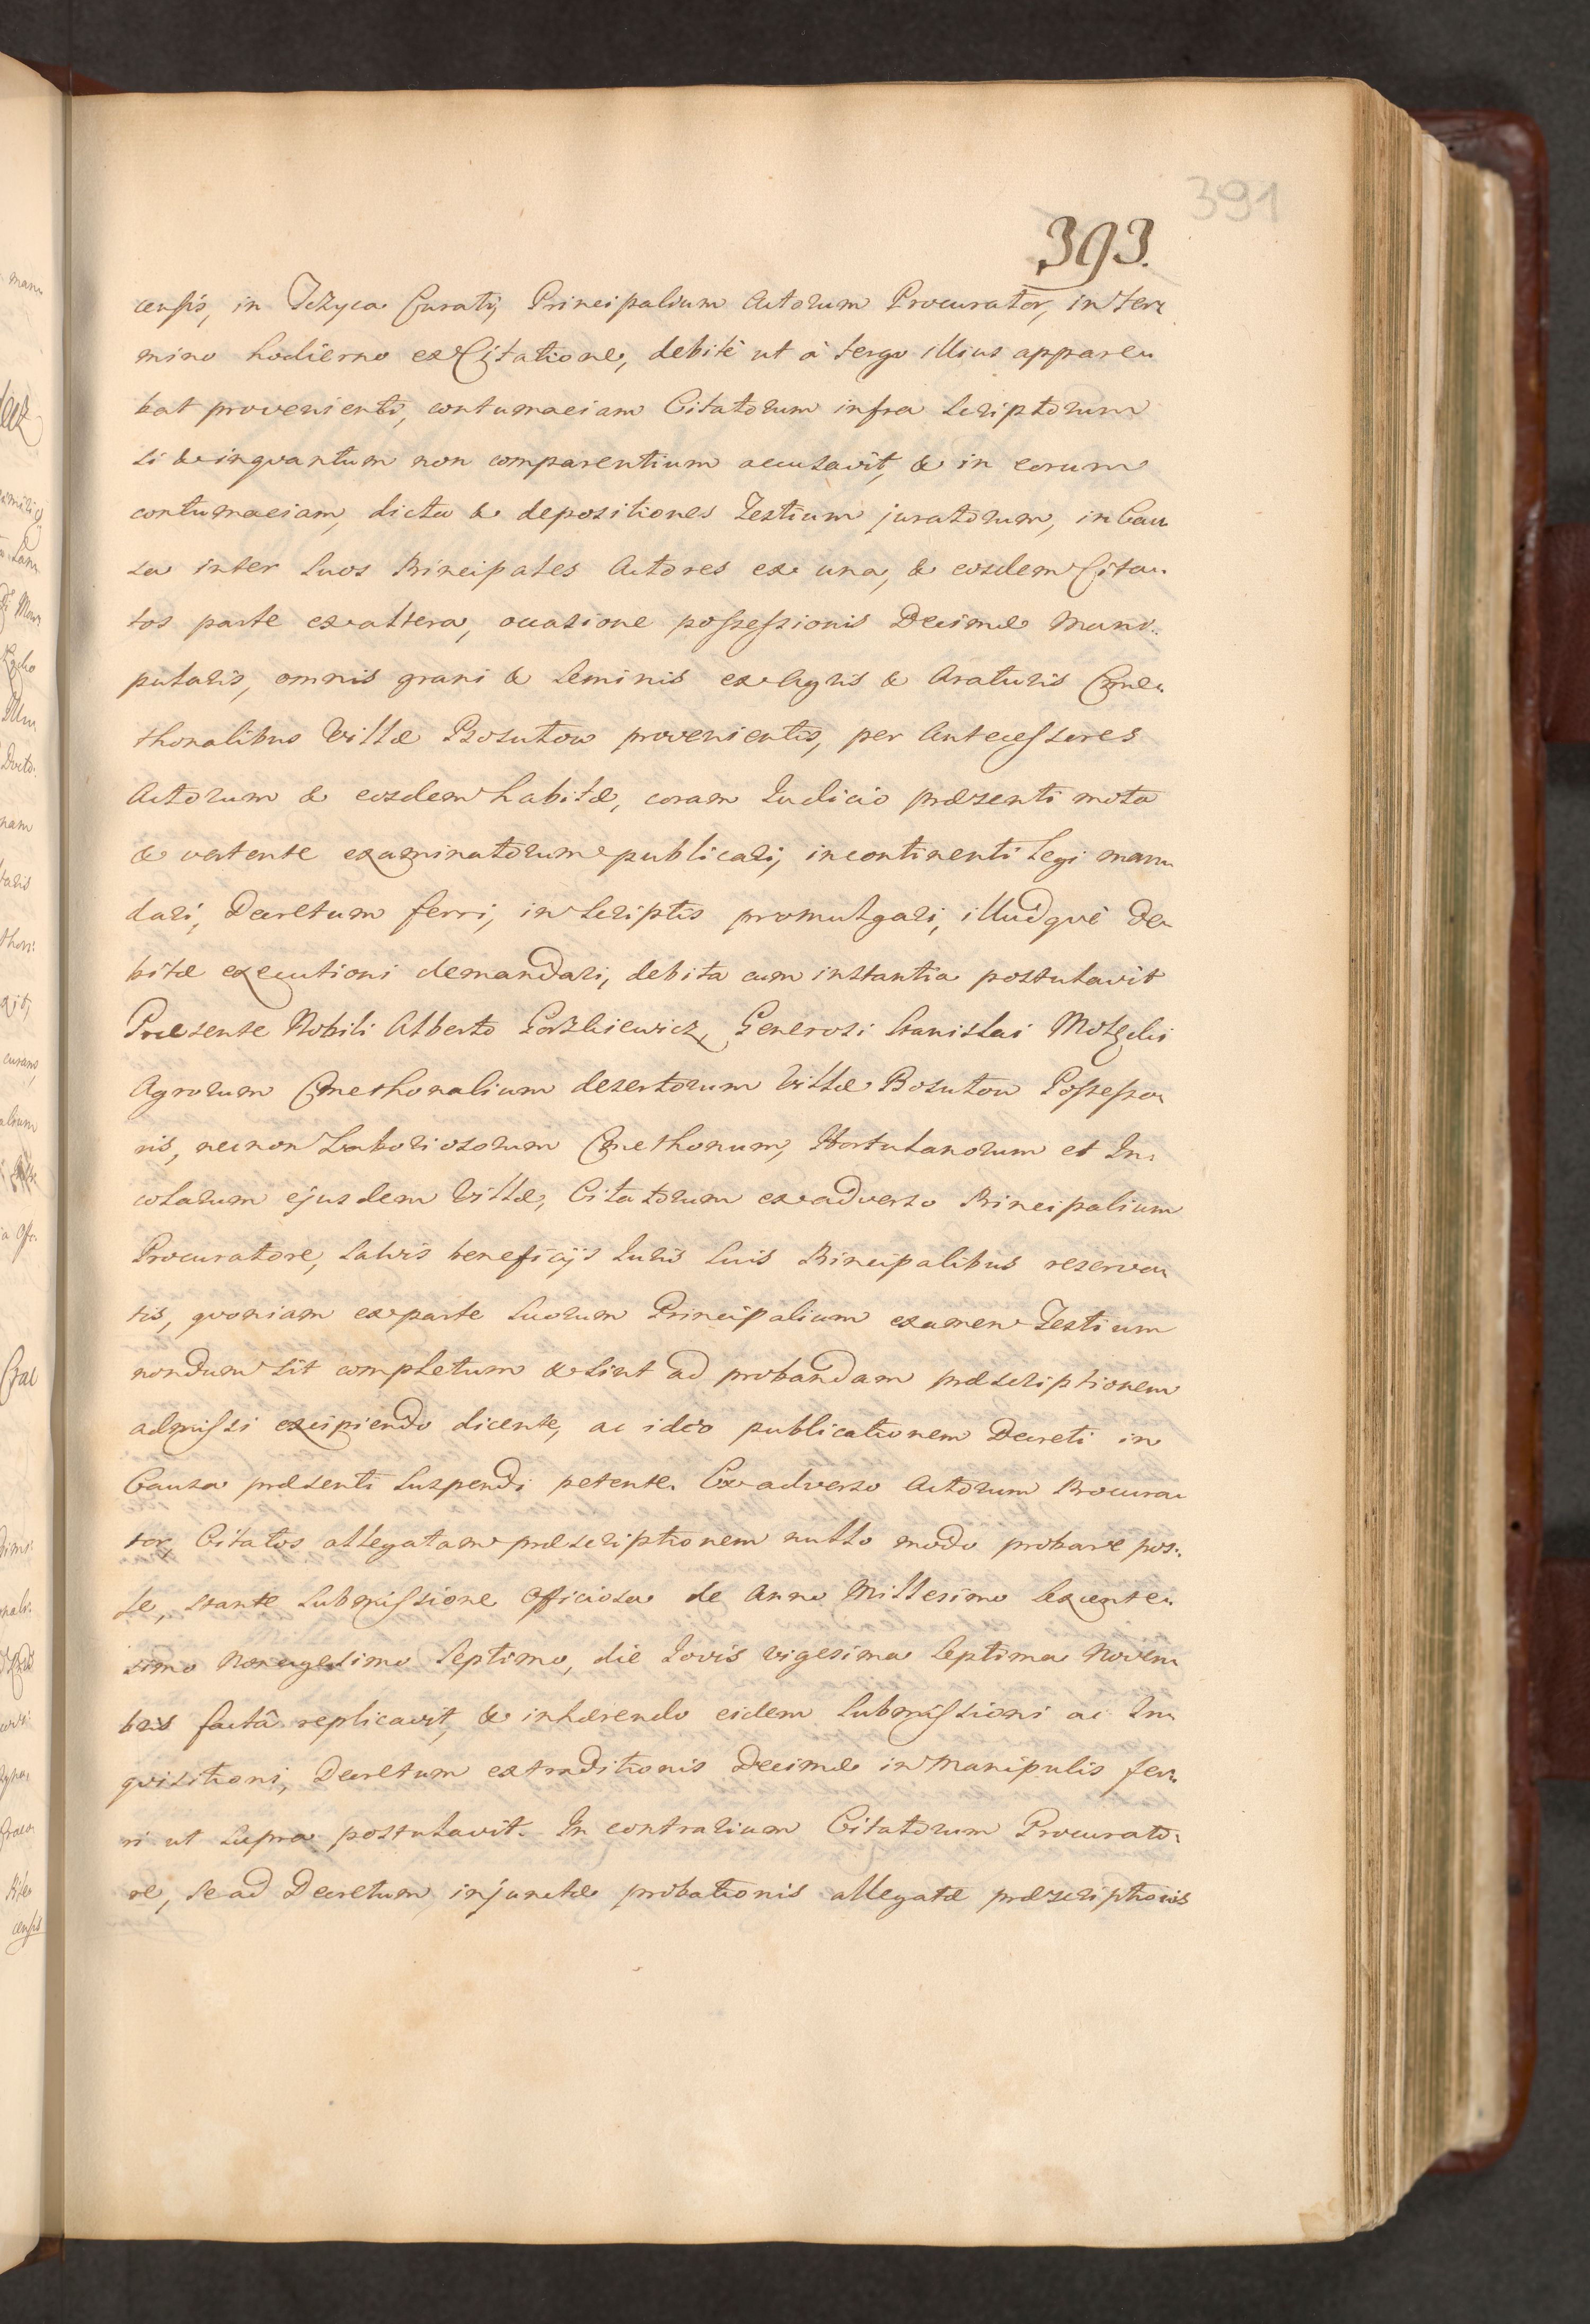 391
393.
censis, in Teżyca Curati, Principalium Actorum Procurator, in ter
mino hodierno ex Citatione, debitè ut à tergo illius appare
bat provenienti, contumaciam Citatorum infra scriptorum
si & inqvantum non comparentium accusavit, & in eorum
contumaciam, dicta & depositiones Testium juratorum, in Cau
sa inter suos Principales Actores ex una, & eosdem Cita
tos parte ex altera, occasione possessionis Decimæ Mani
pularis, omnis grani & seminis ex Agris & Araturis Cme
thonalibus Villæ Bosutow provenientis, per Antecessores
Actorum & eosdem habitæ, coram Iudicio præsenti mota
& vertente examinatorum publicari, incontinenti legi man
dari, Decretum ferri, in scriptis promulgari, illudqvè de
bitæ executioni demandari, debita cum instantia postulavit
Præsente Nobili Alberto Gorzkiewicz, Generosi Stanislai
Agrorum Cmethonalium desertorum Villæ Bosutow Possesso
ris, necnon Laboriosorum Cmethonum, Hortulanorum et In
colarum ejusdem Villæ, Citatorum ex adverso Principalium
Procuratore, salvis beneficijs Iuris suis Principalibus reserva
tis, qvoniam ex parte suorum Principalium examen Testium
nondum sit completum & sint ad probandam præscriptionem
admissi excipiendo dicente, ac ideo publicationem Decreti in
Causa præsenti suspendi petente. Ex adverso Actorum Procura
tor, Citatos allegatam præscriptionem nullo modo probare pos
se, stante submissione officiosa de Anno Millesimo Sexcente
simo Nonagesimo Septimo, die Iovis vigesima septima Novem
bris factâ replicavit, & inhærendo eidem submissioni ac In
qvisitioni, Decretum extraditionis Decimæ in Manipulis fer
ri ut supra postulavit. In contrarium Citatorum Procurato
re, se ad Decretum injunctæ probationis allegatæ præscriptionis